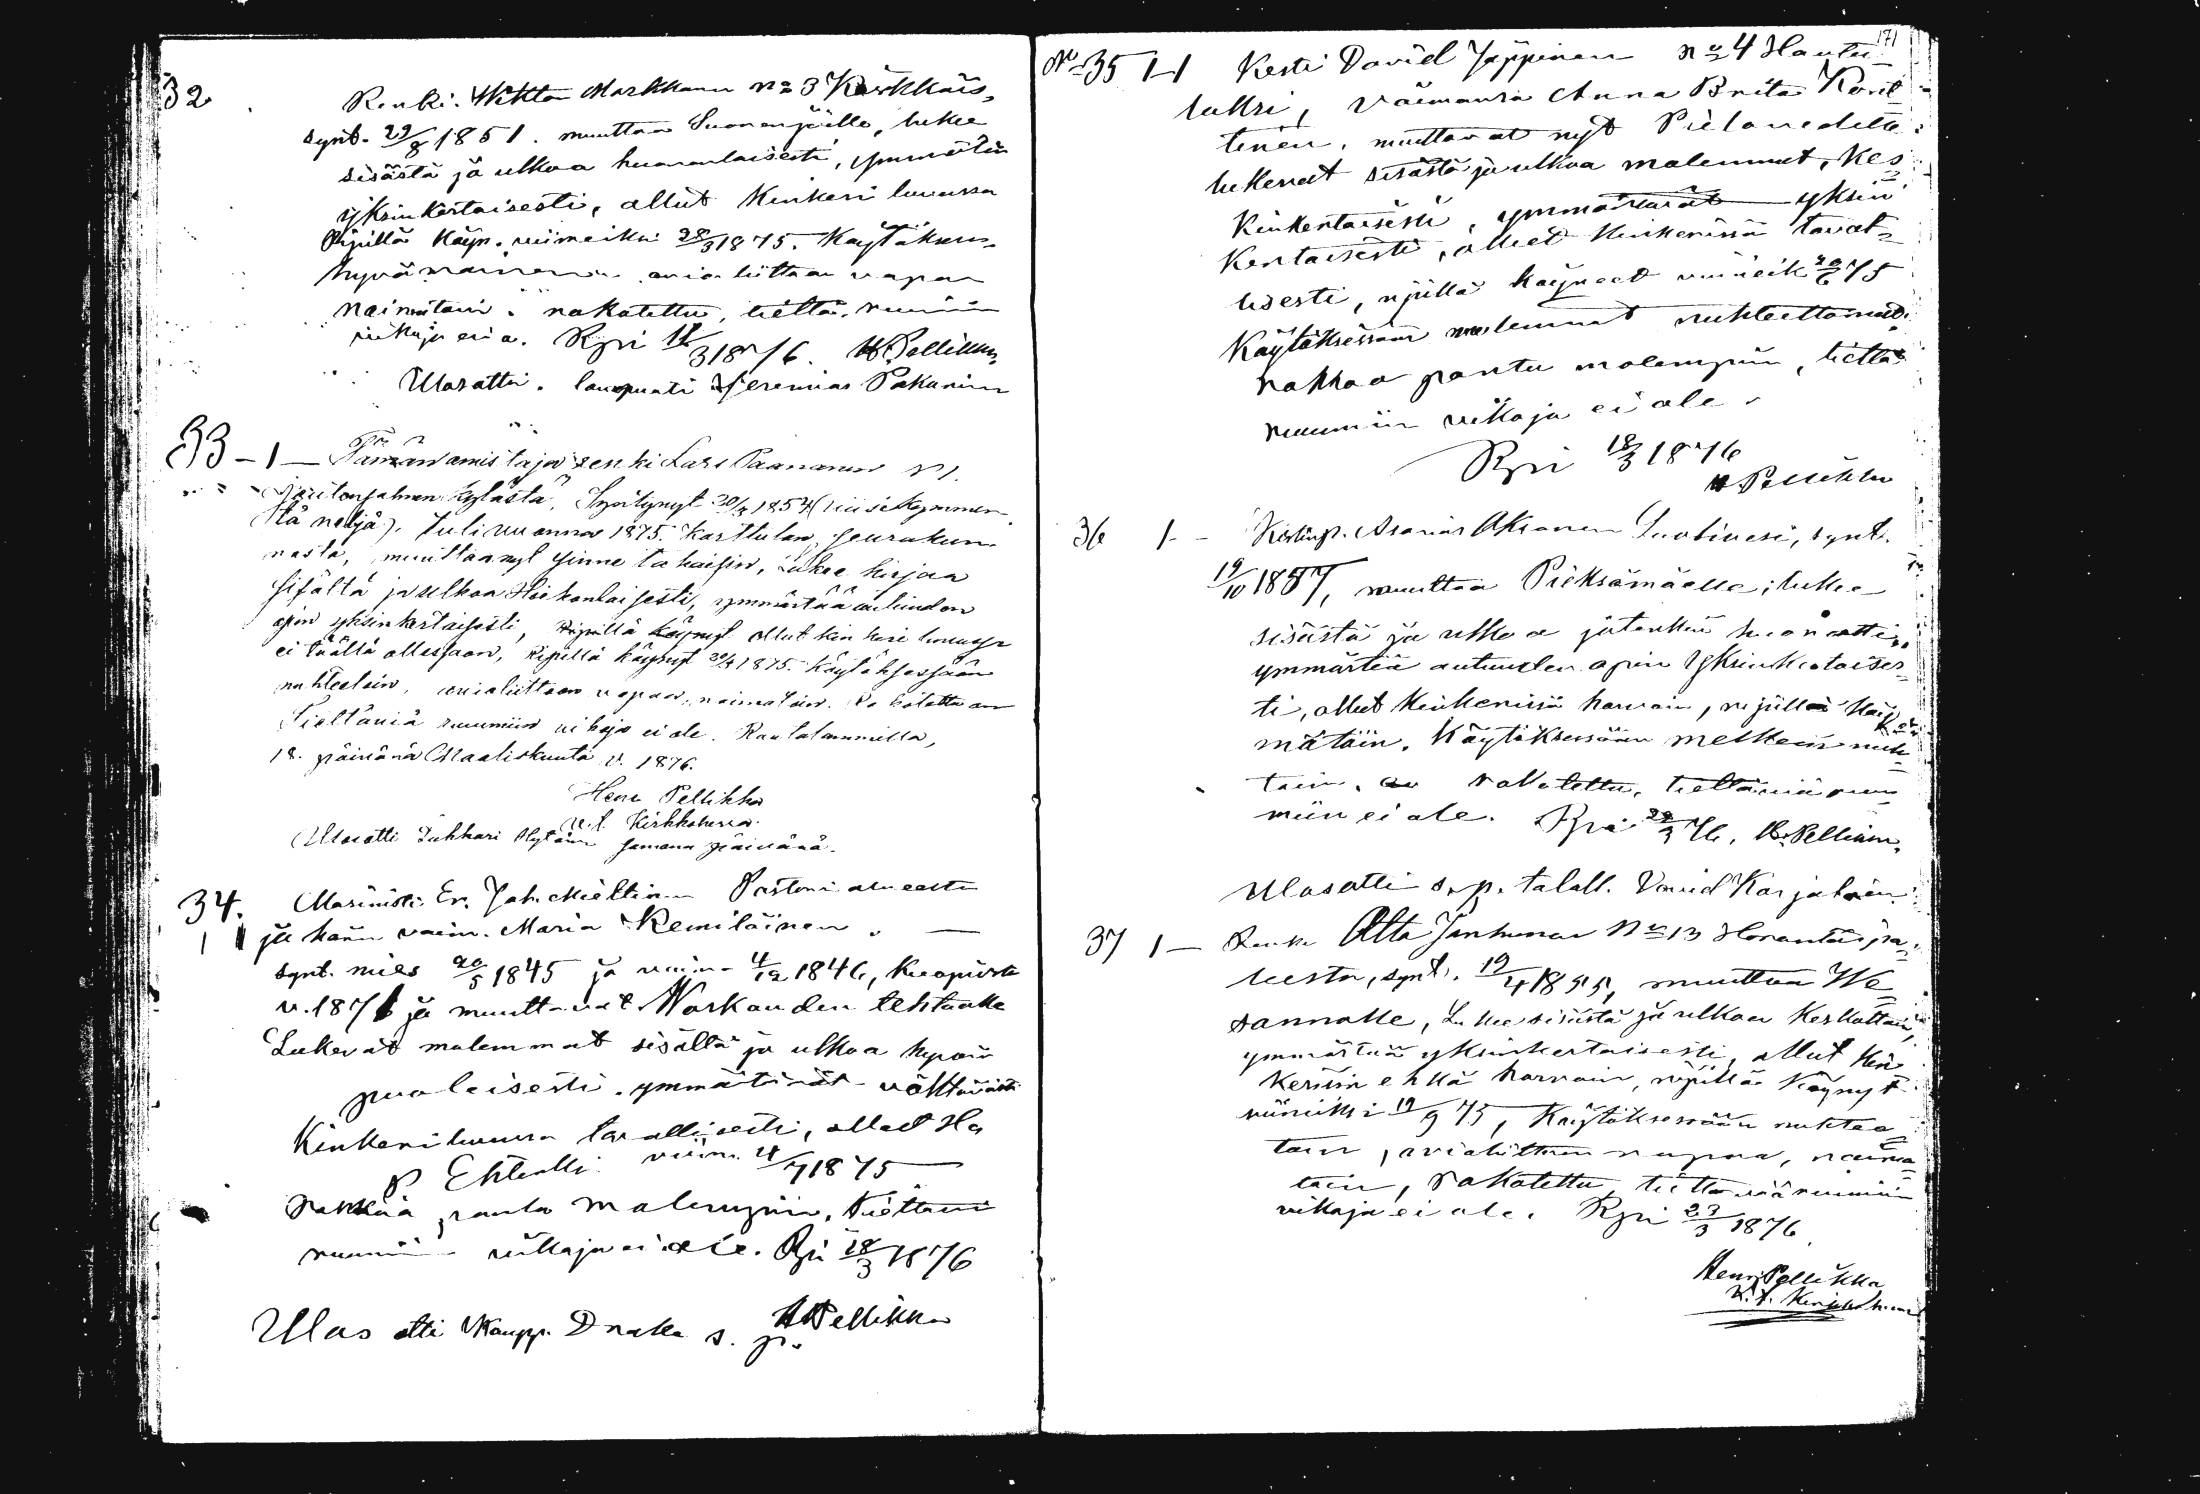 32. Renki Wiktor Markkanen No 3 Kärkkäis-
synt. 29/8 1851. muuttaa Suonenjoelle, lukee
sisästä ja ulkoa huononlaisesti, ymmärtää
yksinkertaisesti, ollut Kinkeri luvuissa
Ripillä käyn. viimeiksi 28/3 1875. Käytöksen
hyvä avioliittoon vapaa
naimatoin. rokotettu, tiettäv. ruumiin
vikoja ei o. Rpi 18/3 1876. H. Pellikka,
Ulosotti. lautapuusti Jeremias Pakarinen
33 - 1 - Tämän omistaja renki Lars Paananen No 1.
kylästä, Syntynyt 30/4 1854 (viisikymmen-
tä neljä). Tuli vuonna 1875. Karttulan seurakun-
nasta, muuttaa nyt sinne takaisin, Lukee kirjaa
sisältä ja ulkoa Heikonlaisesti, ymmärtää autuuden
opin yksinkertaisesti, ollut kinkeri luvuissa
ei täällä ollessaan, Ripillä käynyt 30/4 1875. Käytöksessään
nuhteetoin, avioliittoon vapaa, naimatoin. Rokotettu on
Tiettäviä ruumiin vikoja ei ole. Rautalammilla,
18. päivänä Maaliskuuta v. 1876.
Henr Pellikka
v.t. Kirkkoherra.
Ulosotti Lukkari Hytönen samana päivänä.
34. Er. Joh. Miettinen Pastori
1 1 ja hänen vaim. Maria Remiläinen. —
synt. mies 20/5 1845 ja vaim. 4/12 1846, Kuopiosta
v. 187 ja muuttavat Warkauden tehtaalle
Lukevat molemmat sisältä ja ulkoa hyvän
puolaisesti. ymmärtävät välttävästi
Kinkeriluvuissa tavallisesti, olleet Ha
P. Ehtoolli. viim. 4/7 1875
Rokkoa pantu molempiin, Tiettäviä
ruumiin vikoja ei ole. Rpi 18/3 1876
H Pellikka
Ulos otti Kaupp. Drake s. p.
171
No 35 1-1 Kesti David Jäppinen No 4 Hautu
lukri, vaimonsa Anna Brita Kort
tinen, muuttavat nyt Pielavedelle
lukevat sisästä ja ulkoa molemmat, Kes
kinkertaisesti, ymmärtävät yksin
kertaisesti, olleet kinkerissä tavat
lisesti, ripillä käyneet viimeik 20/6 75
Käytöksessään molemmat nuhteettomat
rokkoa pantu molempiin, tiettäv
ruumiin vikoja ei ole.
Rpi 18/3 1876
H Pellikka
36 1 - Asarias Oksanen Suolivesi, synt.
19/10 1857, muuttaa Pieksämäelle; lukee
sisästä ja ulkoa jotenkin huonosti,
ymmärtää autuuden opin Yksinkertaises
ti, ollut Kinkerissä harvoin, ripillä käy
mätöin. Käytöksessään melkein nuh
toin, on rokotettu, tiettäviä ruu
miin ei ole. Rpi 22/3 76, H. Pellikka.
Ulosotti s. p. taloll. David Karjalain
37 1 - Renki Otto Janhunen No 13 Horontaipa
leesta, synt. 19/4 1855, muuttaa We
sannolle, Lukee sisästä ja ulkoa keskottain,
ymmärtää yksinkertaisesti, ollut kin
kerissä ehkä harvoin, ripillä käynyt
viimeiksi 19/9 75, Käytöksessään nuhtee
toin, avioliittoon vapaa, naima
toin, rokotettu, tiettäviä ruumiin
vikoja ei ole. Rpi 23/3 1876
Henr Pellikka
v.t. Kirkkoherra